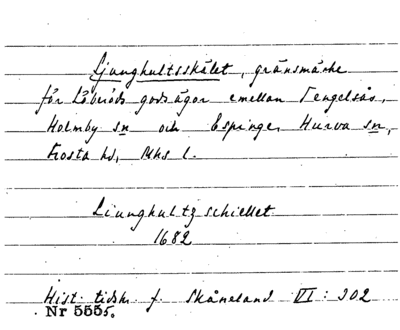 Ljunghultsskälet, gränsmärke
för Löberöds godsägor emellan Tengelsås,
Holmby sn och Espinge, Hurva sn,
Frosta hd, Mhs l.
Liunghultz schiellet
1682
Hist. tidskr. f. Skåneland VI: 302
Nr 5555.